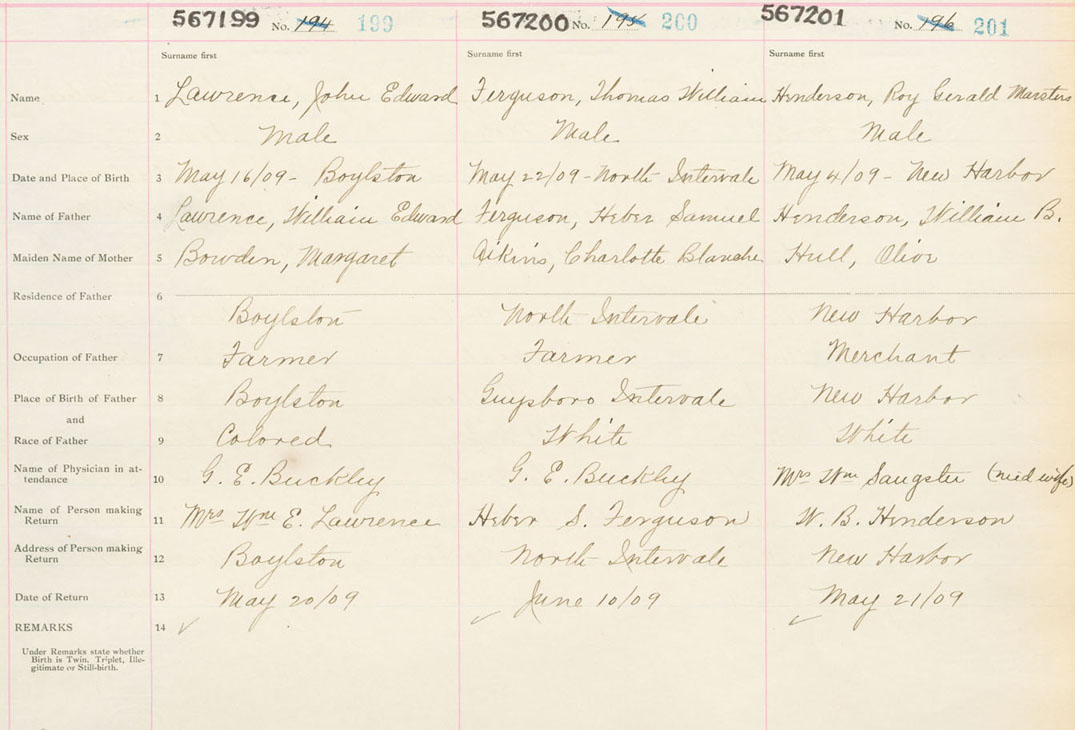 567199 No. 194 199 567200 No. 195 200 567201 No. 196 201
Surname first Surname first Surname first
Name 1 Lawrence, John Edward Ferguson, Thomas William Henderson, Roy Gerald Marsters
Sex 2 Male Male Male
Date and Place of Birth 3 May 16/09 - Boylston May 22/09 - North Intervale May 4/09 - New Harbor
Name of Father 4 Lawrence, William Edward Ferguson, Heber Samuel Henderson, William B.
Maiden Name of Mother 5 Bowden, Margaret Aikins, Charlotte Blanche Hull, Olive
Residence of Father 6
Boylston North Intervale New Harbor
Occupation of Father 7 Farmer Farmer Merchant
Place of Birth of Father 8 Boylston Guysboro Intervale New Harbor
and
Race of Father 9 Colored White White
Name of Physician in at-
tendance 10 G. E. Buckley G. E. Buckley Mrs Wm Sangster (mid wife)
Name of Person making
Return 11 Mrs Wm E. Lawrence Heber S. Ferguson W. B. Henderson
Address of Person making
Return 12 Boylston North Intervale New Harbor
Date of Return 13 May 20/09 June 10/09 May 21/09
REMARKS 14 ✓ ✓ ✓
Under Remarks state whether
Birth is Twin, Triplet, Ille-
gitimate or Still-birth.